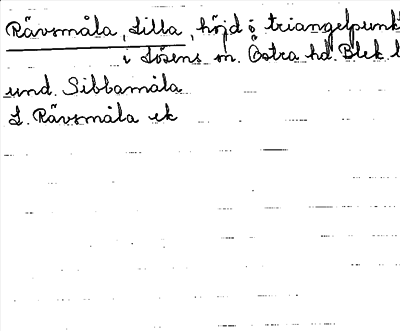 Rävsmåla, Lilla, höjd o triangelpunkt
i Lösens sn. Östra hd. Blek l
und. Sibbamåla
L. Rävsmåla ek